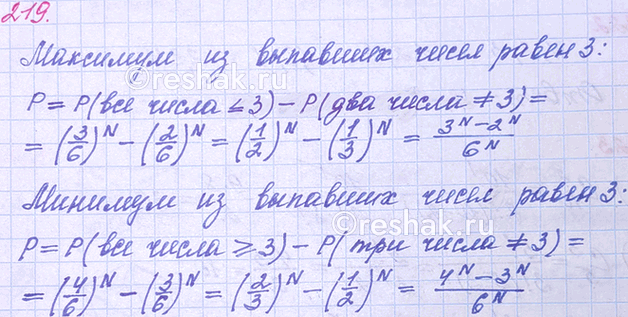 219.
Максимум из выпавших чисел равен 3:
P = P(все числа ≤ 3) − P(два числа ≠ 3) =
= (3/6)^N − (2/6)^N = (1/2)^N − (1/3)^N = (3^N − 2^N)/6^N
Минимум из выпавших чисел равен 3:
P = P(все числа ≥ 3) − P(три числа ≠ 3) =
= (4/6)^N − (3/6)^N = (2/3)^N − (1/2)^N = (4^N − 3^N)/6^N
reshak.ru
reshak.ru